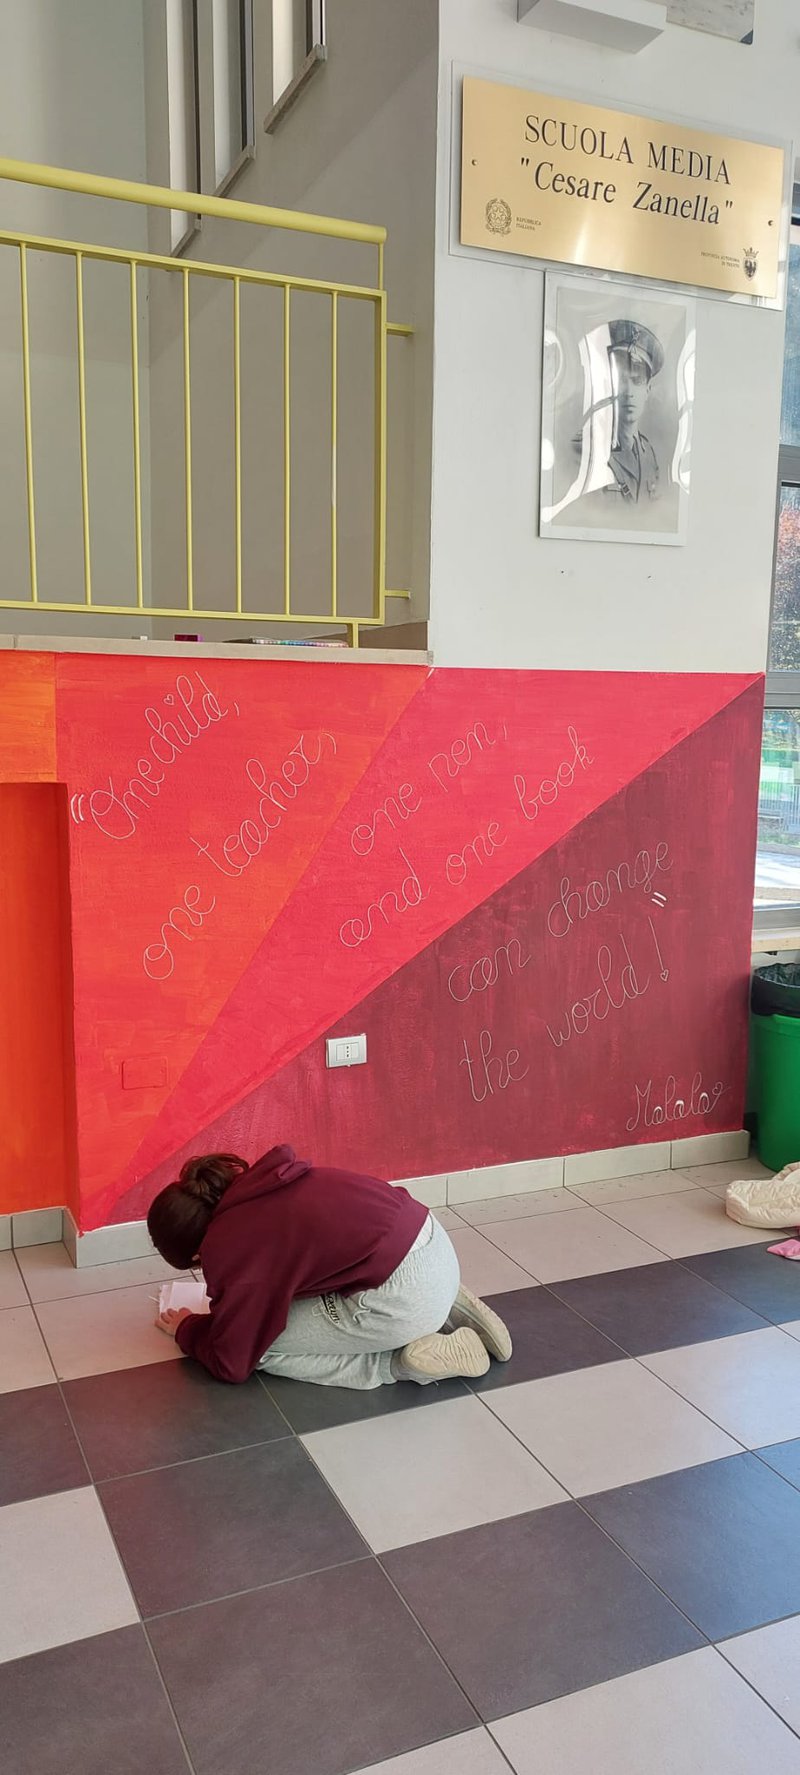 SCUOLA MEDIA
"Cesare Zanella"
REPUBBLICA
ITALIANA
PROVINCIA AUTONOMA
DI TRENTO
"One child,
one teacher,
one pen,
and one book
can change"
the world!
Malala